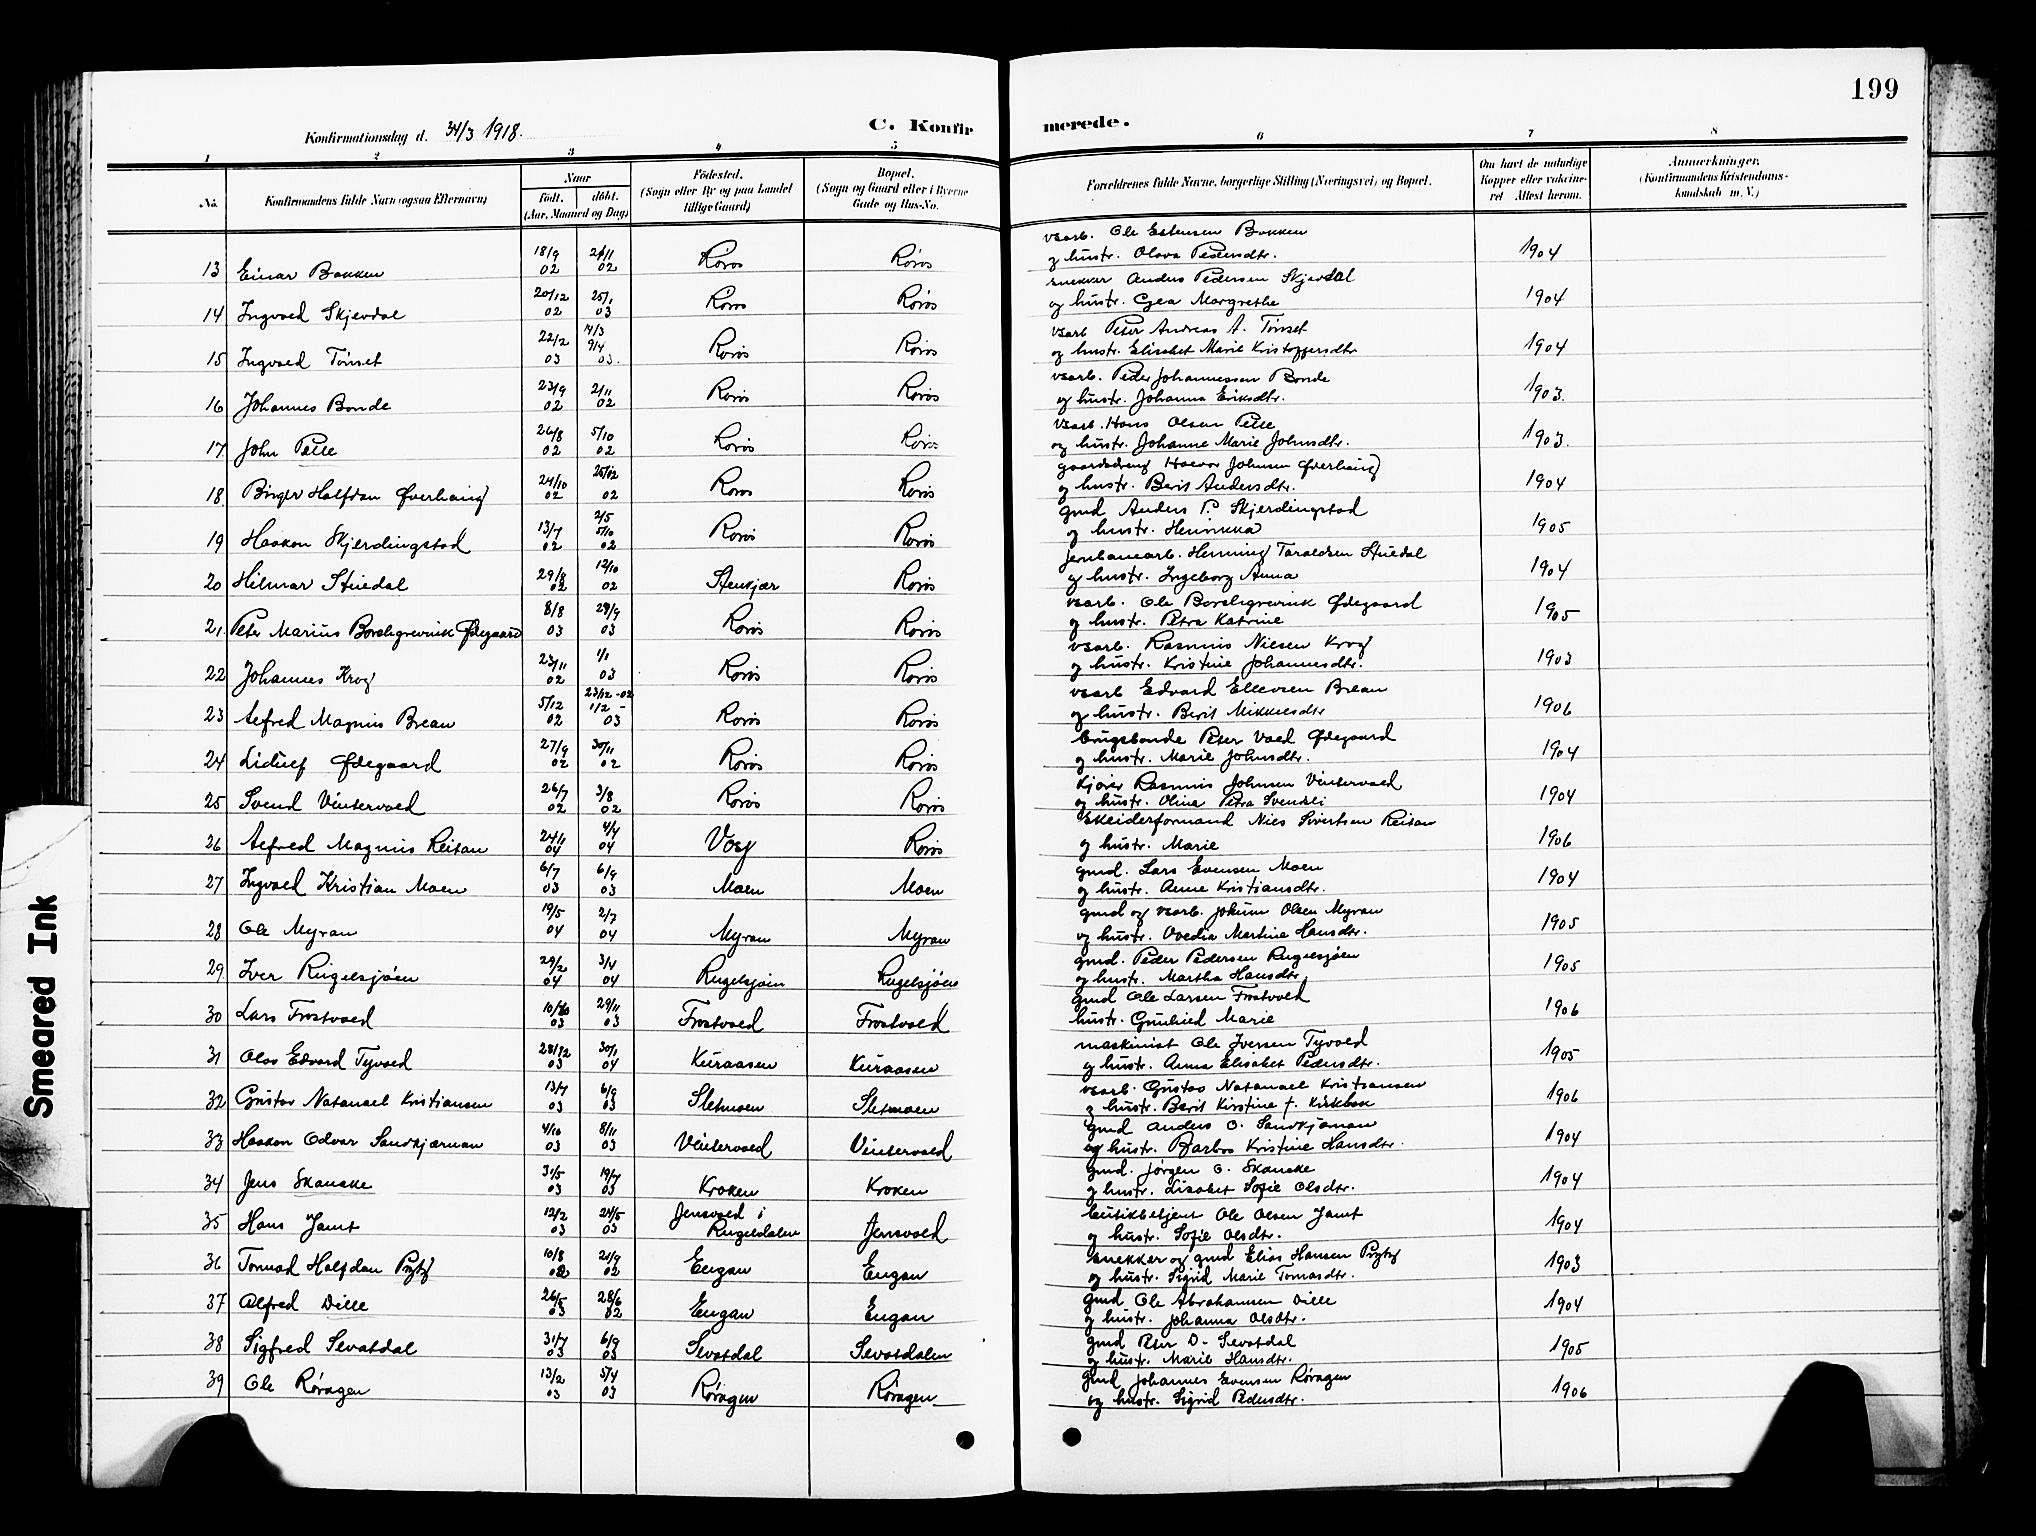 199
Konfirmationsdag d. 31/3 1918.
C. Konfirmerede.
1 2 3 4 5 6 7 8
No.
Konfirmandens fulde Navn (ogsaa Efternavn)
Naar
født. døbt.
(Aar, Maaned og Dag)
Fødested.
(Sogn eller By og paa Landet
tillige Gaard)
Bopæl.
(Sogn og Gaard eller i Byerne
Gade og Hus-No.
Forældrenes fulde Navne, borgerlige Stilling (Næringsvei) og Bopæl.
Om havt de naturlige
Kopper eller vaccine-
ret Attest herom.
Anmærkninger.
(Konfirmandens Kristendoms-
kundskab m. V.)
13 Einar Bakken 18/9 02 21/11 02 Røros Røros varb. Ole Estensen Bakken
og hustr. Olava Pedersdtr. 1904
14 Ingvald Skjevdal 20/12 02 25/1 03 Røros Røros snekker Anders Pedersen Skjevdal
og hustr. Gea Margrethe 1904
15 Ingvald Tønset 22/2 03 4/3 9/4 03. Røros Røros varb Peter Andreas A. Tønset
og hustr. Elisabet Marie Kristoffersdtr 1904
16 Johannes Bonde 23/9 02 2/11 02 Røros Røros varb. Peder Johannessen Bonde
og hustr. Johanna Eriksdtr. 1903.
17 John Pelle 26/8 02 5/10 02 Røros Røros varb. Hans Olsen Pelle
og hustr. Johanne Marie Johnsdtr. 1903.
18. Birger Halfdan Øverhaug 24/10 02 25/12 02 Røros Røros gaardsdreng Halvor Johnsen Øverhaug
og hustr. Berit Andersdtr. 1904
19 Haakon Skjerdingstad 13/7 02 2/5 5/10 02 Røros Røros gmd Anders P. Skjerdingstad
og hustr. Henrikka 1905
20 Hilmar Stuedal 29/8 02 12/10 02 Stenkjær Røros jernbanearb. Henning Taraldsen Stuedal
og hustr. Ingeborg Anna 1904
21 Peter Marius Borchgrevink Ødegaard 8/8 03 29/9 03 Røros Røros varb. Ole Borchgrevink Ødegaard
og hustr. Petra Katrine 1905
22 Johannes Krog 23/11 02 1/1 03 Røros Røros varb. Rasmus Nilsen Krog
og hustr. Kristine Johannesdtr. 1903
23 Alfred Magnus Brean 5/12 02 23/12 -02 1/2 - 03 Røros Røros varb Edvard Ellevsen Brean
og hustr. Berit Mikkelsdtr 1906
24 Lidulf Ødegaard 27/9 02 30/11 02 Røros Røros brugsbonde Peter Vald Ødegaard
og hustr. Marie Johnsdtr. 1904
25 Svend Vintervold 26/7 02 3/8 02 Røros Røros kjører Rasmus Johnsen Vintervold
og hustr. Olina Petra Svendsdtr 1904
26 Alfred Magnus Reitan 24/1 04 4/4 04 Røros Skeiderformand Nils Sivertsen Reitan
og hustr. Marie 1906
27 Ingvald Kristian Moen 6/7 03 6/9 03 Moen Moen gmd. Lars Evensen Moen
og hustr. Anne Kristiansdtr. 1904
28 Ole Myran 19/5 04 2/7 04 Myran Myran gmd og varb. Jokum Olsen Myran
og hustr. Ovedia Martine Hansdtr. 1905
29 Iver Rugelsjøen 29/2 04 3/4 04 Rugelsjøen Rugelsjøen gmd. Peder Pedersen Rugelsjøen
og hustr. Martha Hansdtr 1905
30 Lars Frostvold 10/10 03 29/11 03 Frostvold Frostvold gmd Ole Larsen Frostvold
hustr. Gunhild Marie 1906
31 Olav Edvard Tyvold 28/12 03 30/1 04 Kuraasen Kuraasen maskinist Ole Iversen Tyvold
og hustr. Anna Elisabet Pedersdtr. 1905
32 Gustav Natanael Kristiansen 13/7 03 6/9 03 Sletmoen Sletmoen varb. Gustav Natanael Kristiansen
og hustr. Berit Kirstine f. Kirkbak 1906
33 Haakon Odvar Sandkjærnan 4/10 03 8/11 03 Vintervold Vintervold gmd Anders O. Sandkjærnan
og hustr. Barbro Kristine Hansdtr. 1904
34 Jens Skancke 31/5 03 19/7 03 Kroken Kroken gmd. Jørgen O. Skancke
og hustr. Lisabet Sofie Olsdtr. 1904
35 Hans Jamt 12/2 03 24/5 03 Jensvold i Rugeldalen Jensvold butikbetjent Ole Olsen Jamt
og hustr. Sofie Olsdtr. 1904
36 Tomas Halfdan Prytz 10/8 02 21/9 02 Engan Engan snekker og gmd Elias Hansen Prytz
og hustr. Sigrid Marie Tomasdtr. 1903
37 Alfred Dille 26/5 03 28/6 02 Engan Engan gmd Ole Abrahamsen Dille
og hustr. Johanna Olsdtr. 1904
38 Sigfred Sevatdal 31/7 03 6/9 03 Sevatdal Sevatdalen gmd Peter D. Sevatdal
og hustr. Marie Hansdtr. 1905
39 Ole Røragen 13/2 03 5/4 03 Røragen Røragen gmd Johannes Evensen Røragen
og hustr. Sigrid Pedersdtr. 1906
Smeared Ink